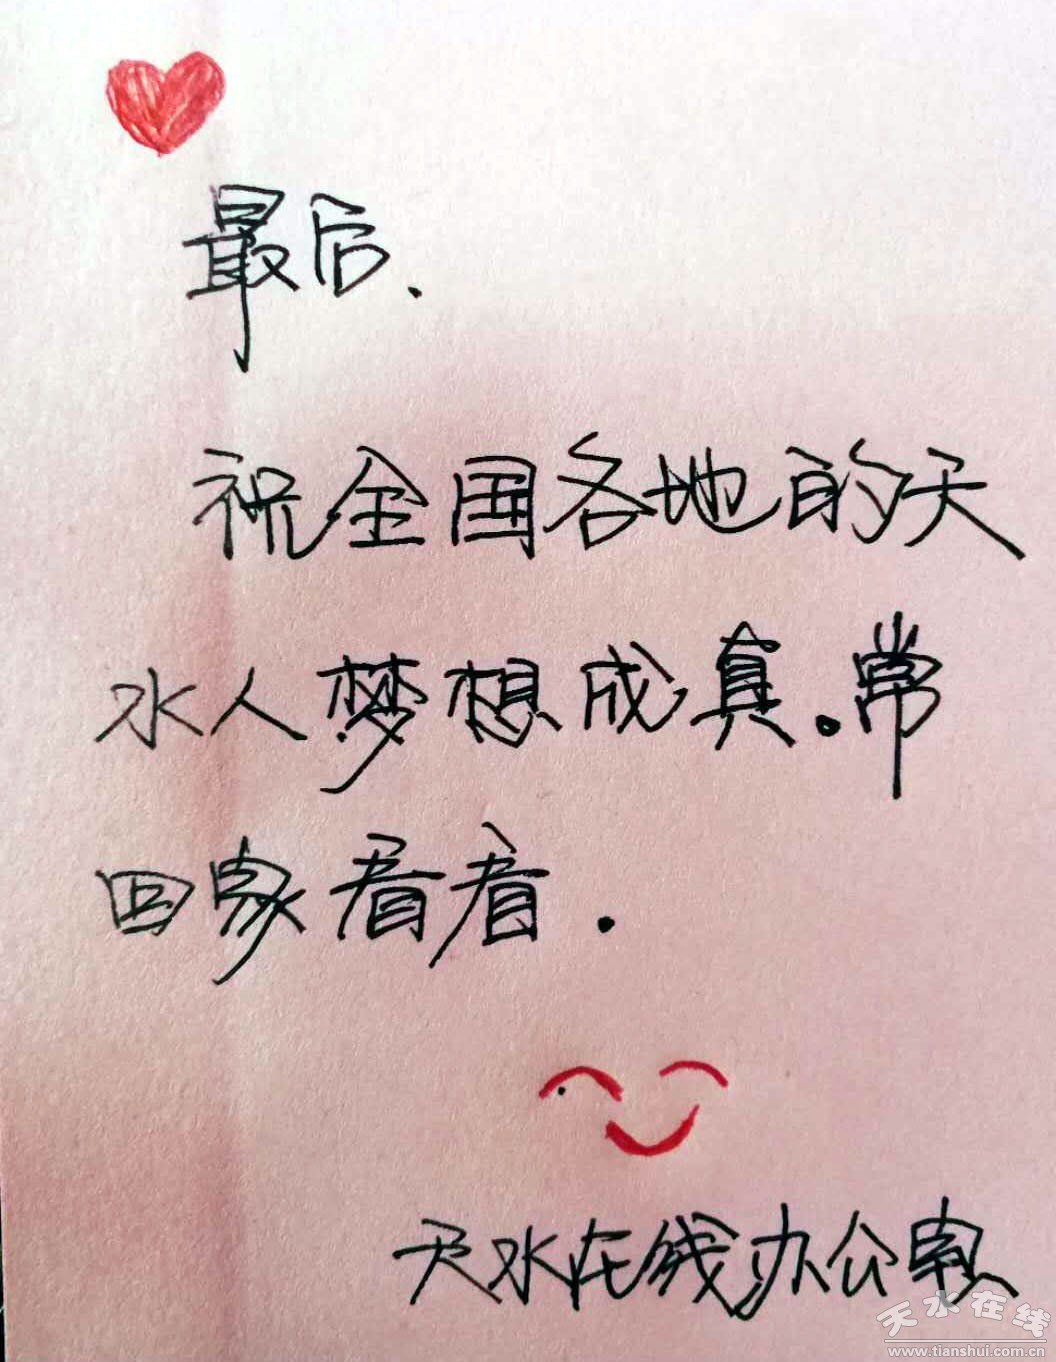 最后、
祝全国各地的天
水人梦想成真。常
回家看看.
天水在线办公室
天水在线
www.tianshui.com.cn